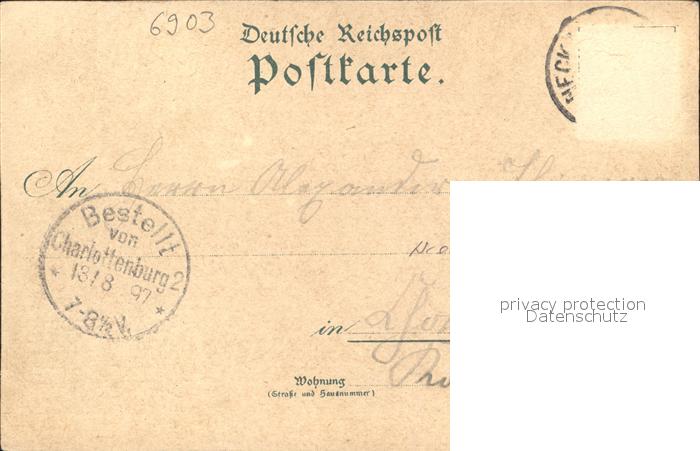 6903
Deutsche Reichspost
Postkarte.
NECK
An Herrn Alexander
Bestellt
von
Charlottenburg 2
18/8 97
7-8½ V.
in
Wohnung
(Straße und Hausnummer)
privacy protection
Datenschutz